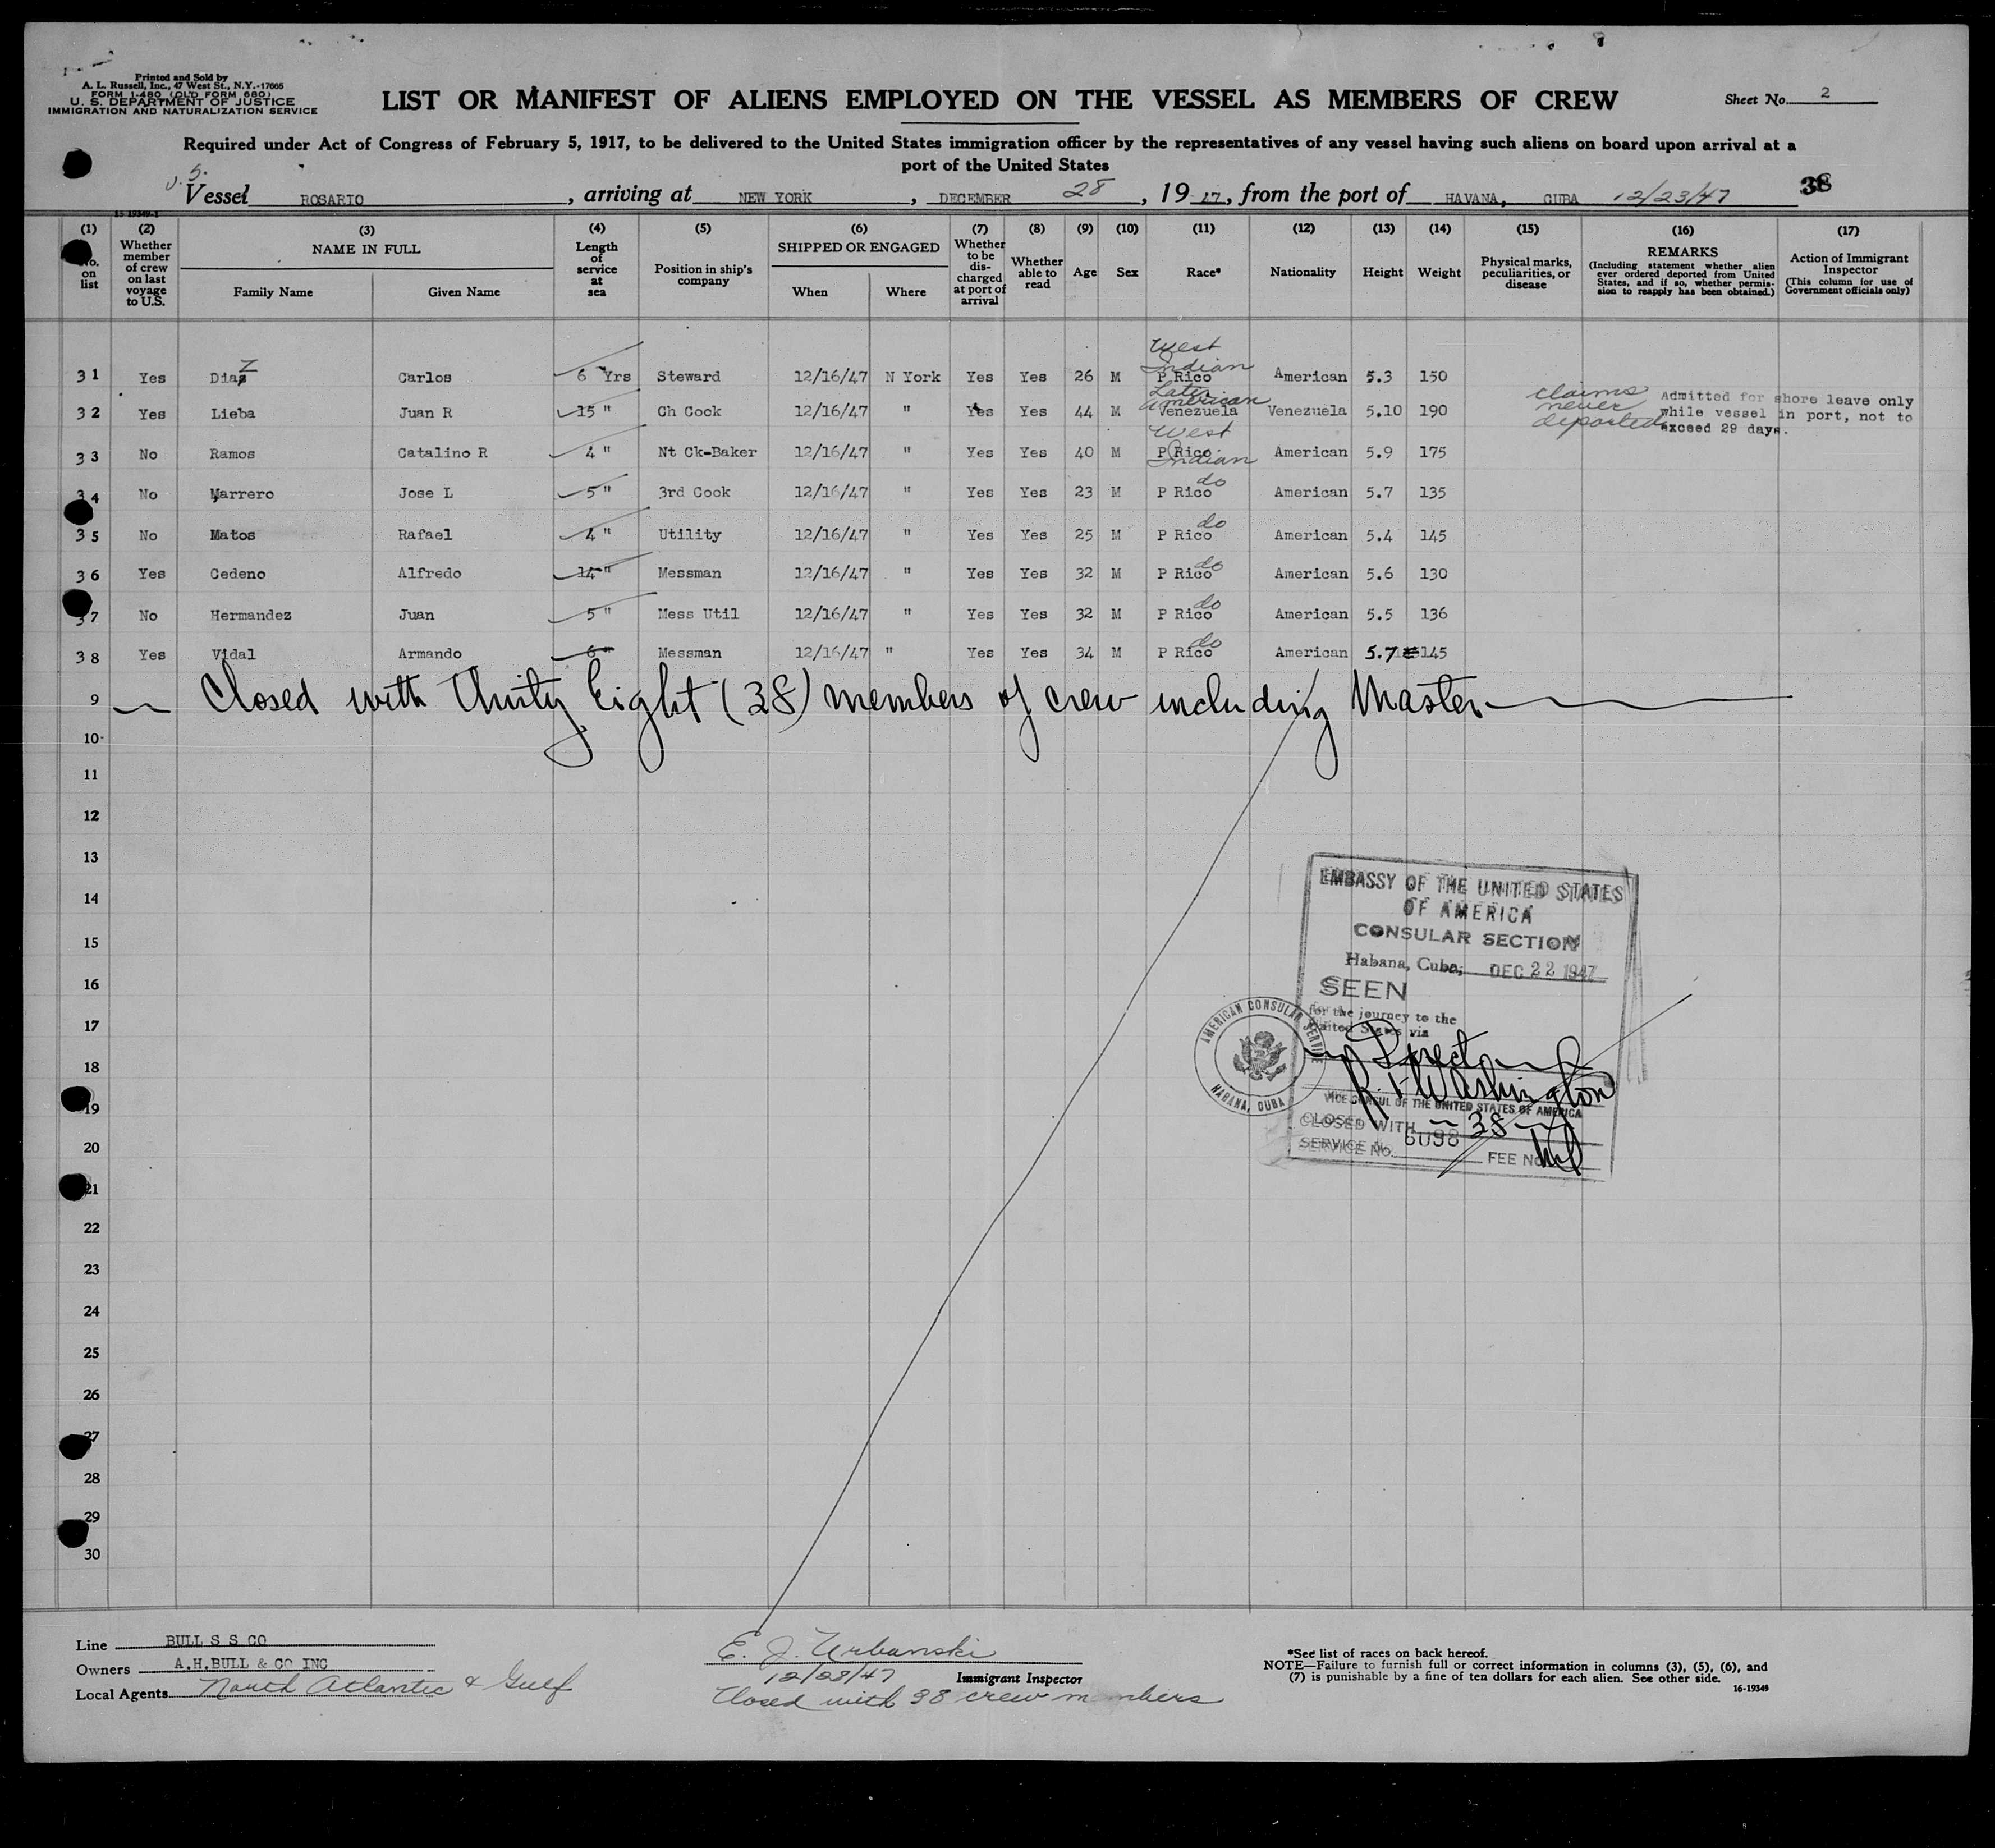 Printed and Sold by
A. L. Russell, Inc., 47 West St., N.Y.-17666
FORM I-480 (OLD FORM 680)
U. S. DEPARTMENT OF JUSTICE
IMMIGRATION AND NATURALIZATION SERVICE
LIST OR MANIFEST OF ALIENS EMPLOYED ON THE VESSEL AS MEMBERS OF CREW
Sheet No. 2
Required under Act of Congress of February 5, 1917, to be delivered to the United States immigration officer by the representatives of any vessel having such aliens on board upon arrival at a
port of the United States
Vessel ROSARIO, arriving at NEW YORK, DECEMBER 28, 1947, from the port of HAVANA, CUBA 12/23/47 38
(1) No. on list
(2) Whether member of crew on last voyage to U.S.
(3) NAME IN FULL Family Name Given Name
(4) Length of service at sea
(5) Position in ship's company
(6) SHIPPED OR ENGAGED When Where
(7) Whether to be discharged at port of arrival
(8) Whether able to read
(9) Age
(10) Sex
(11) Race*
(12) Nationality
(13) Height
(14) Weight
(15) Physical marks, peculiarities, or disease
(16) REMARKS (Including statement whether alien ever ordered deported from United States, and if so, whether permission to reapply has been obtained.)
(17) Action of Immigrant Inspector (This column for use of Government officials only)
West Indian
31 Yes Diaz Carlos 6 Yrs Steward 12/16/47 N York Yes Yes 26 M P Rico American 5.3 150
Latin American
32 Yes Lieba Juan R 15 " Ch Cook 12/16/47 " Yes Yes 44 M Venezuela Venezuela 5.10 190 claims never deported Admitted for shore leave only while vessel in port, not to exceed 29 days.
West Indian
33 No Ramos Catalino R 4 " Nt Ck-Baker 12/16/47 " Yes Yes 40 M P Rico American 5.9 175
34 No Marrero Jose L 5 " 3rd Cook 12/16/47 " Yes Yes 23 M P Rico do American 5.7 135
35 No Matos Rafael 4 " Utility 12/16/47 " Yes Yes 25 M P Rico do American 5.4 145
36 Yes Cedeno Alfredo 14 " Messman 12/16/47 " Yes Yes 32 M P Rico do American 5.6 130
37 No Hermandez Juan 5 " Mess Util 12/16/47 " Yes Yes 32 M P Rico do American 5.5 136
38 Yes Vidal Armando 6 " Messman 12/16/47 " Yes Yes 34 M P Rico do American 5.7 145
9 Closed with Thirty Eight (38) members of crew including Master
10
11
12
13
14
15
16
17
18
19
20
21
22
23
24
25
26
27
28
29
30
EMBASSY OF THE UNITED STATES
OF AMERICA
CONSULAR SECTION
Habana, Cuba, DEC 22 1947
SEEN
for the journey to the
United States via
Direct
AMERICAN CONSULAR SERVICE
HABANA, CUBA
Washington
VICE CONSUL OF THE UNITED STATES OF AMERICA
CLOSED WITH 38
SERVICE No. 6098 FEE No.
Line BULL S S CO
Owners A.H.BULL & CO INC
Local Agents North Atlantic & Gulf
E. J. Urbanski
12/28/47 Immigrant Inspector
Closed with 38 crew members
*See list of races on back hereof.
NOTE—Failure to furnish full or correct information in columns (3), (5), (6), and
(7) is punishable by a fine of ten dollars for each alien. See other side.
16-19349